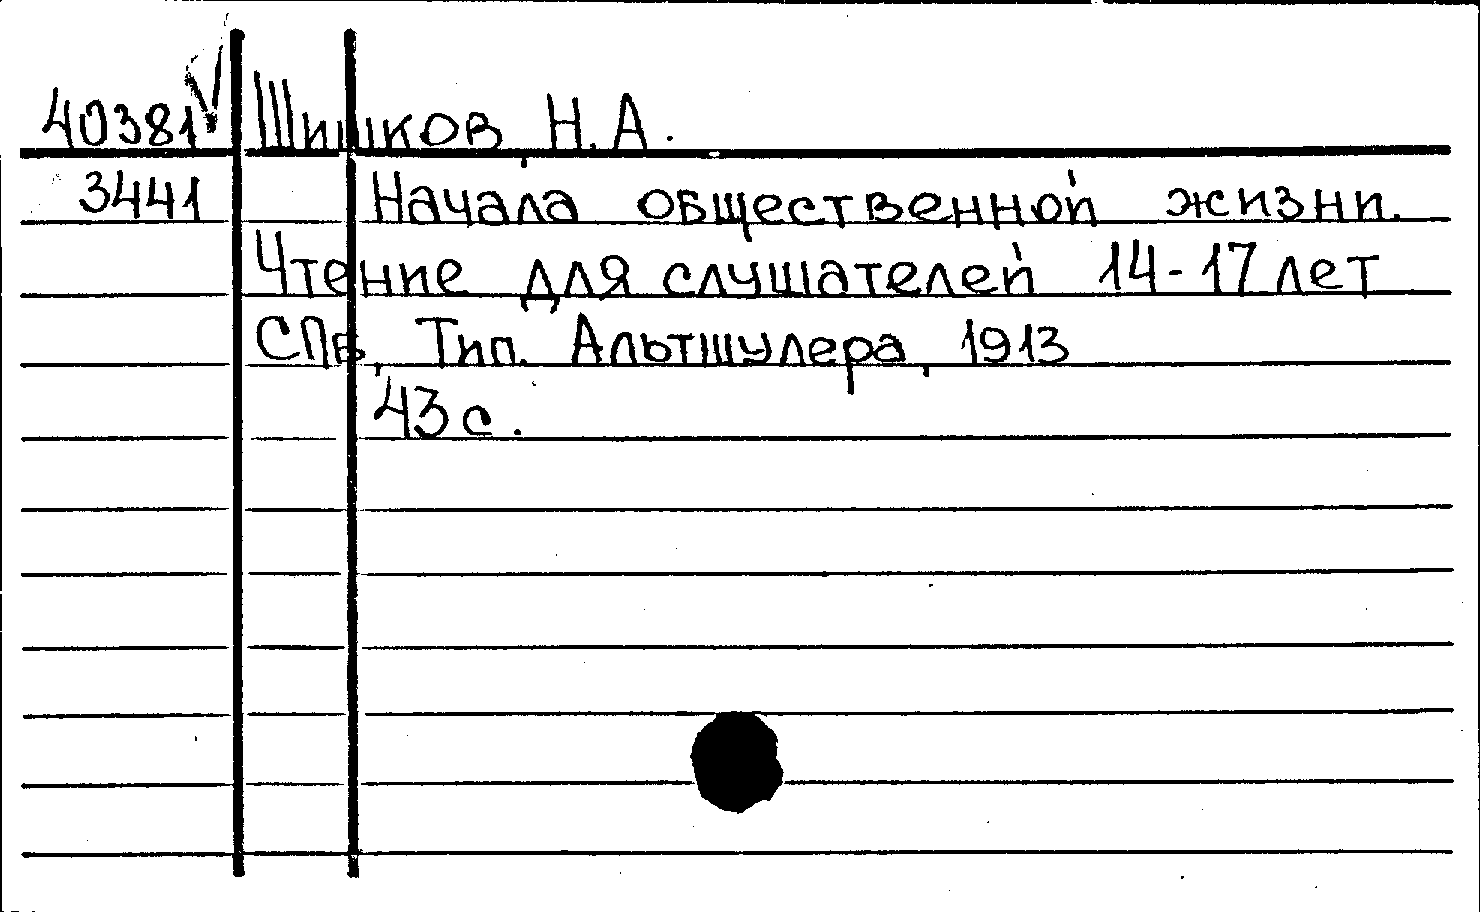 40381 Шишков, Н. А.
3441 Начала общественной жизни.
Чтение для слушателей 14-17 лет
СПб, Тип. Альтшулера, 1913
43 с.